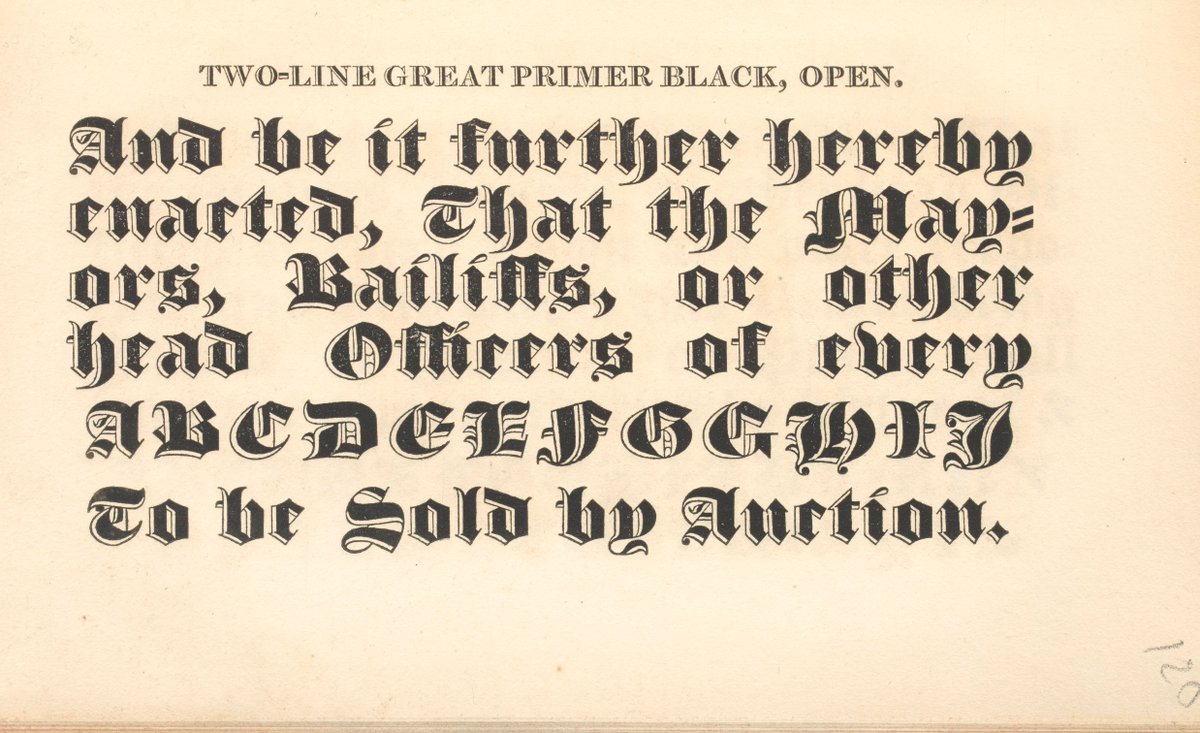 TWO-LINE GREAT PRIMER BLACK, OPEN.
And be it further hereby
enacted, That the May-
ors, Bailiffs, or other
head Officers of every
ABCDEEFGGHIJ
To be Sold by Auction.